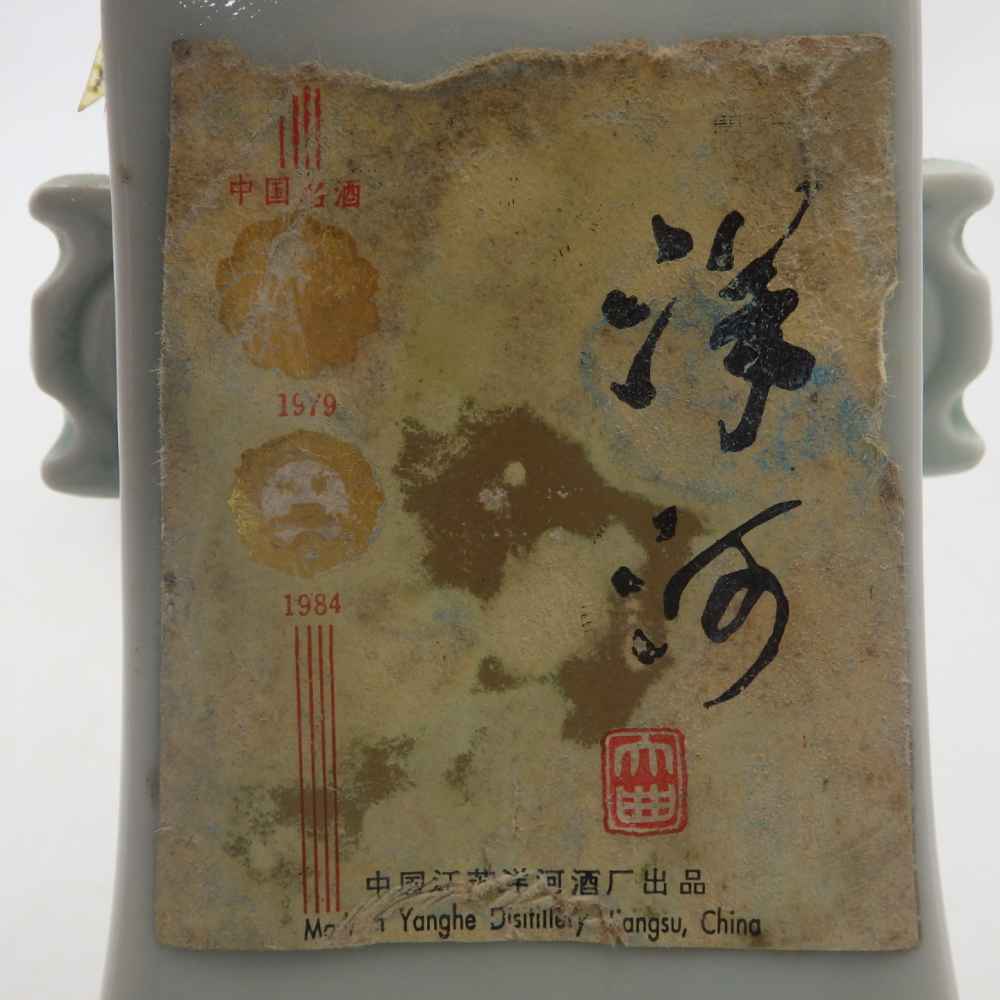 中国名酒
1979
1984
洋河
大曲
中国江苏洋河酒厂出品
Made in Yanghe Disitillery Jiangsu, China